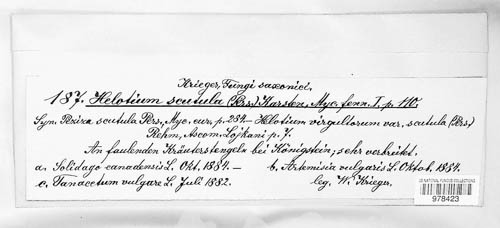 Krieger, Fungi saxonici.
187. Helotium scutula (Pers.) Karsten, Myc. fenn. I. p. 110.
Syn. Peziza scutula Pers. Myc. eur. p. 284 — Helotium virgultorum var. scutula (Pers.)
Rehm, Ascom. Lojkani p. 7.
An faulenden Kräuterstengeln bei Königstein; sehr verbreitet.
a. Solidago canadensis L. Okt. 1884. — b. Artemisia vulgaris L. Oktob. 1884.
c. Tanacetum vulgare L. Juli 1882. leg. W. Krieger.
US NATIONAL FUNGUS COLLECTIONS
978423